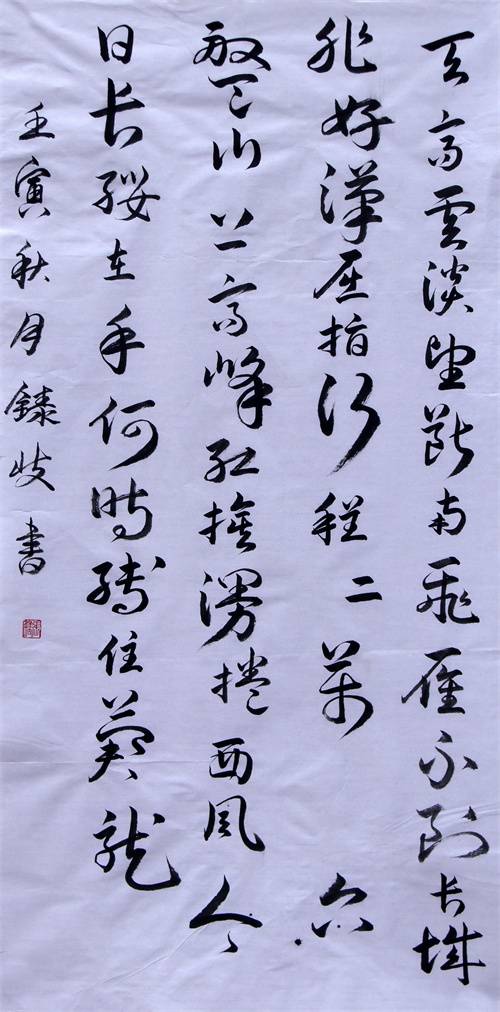 天高雲淡望斷南飛雁不到长城
非好漢屈指行程二萬六
盤山上高峰红旗漫捲西風今
日长纓在手何時縛住蒼龍
壬寅秋月歧書